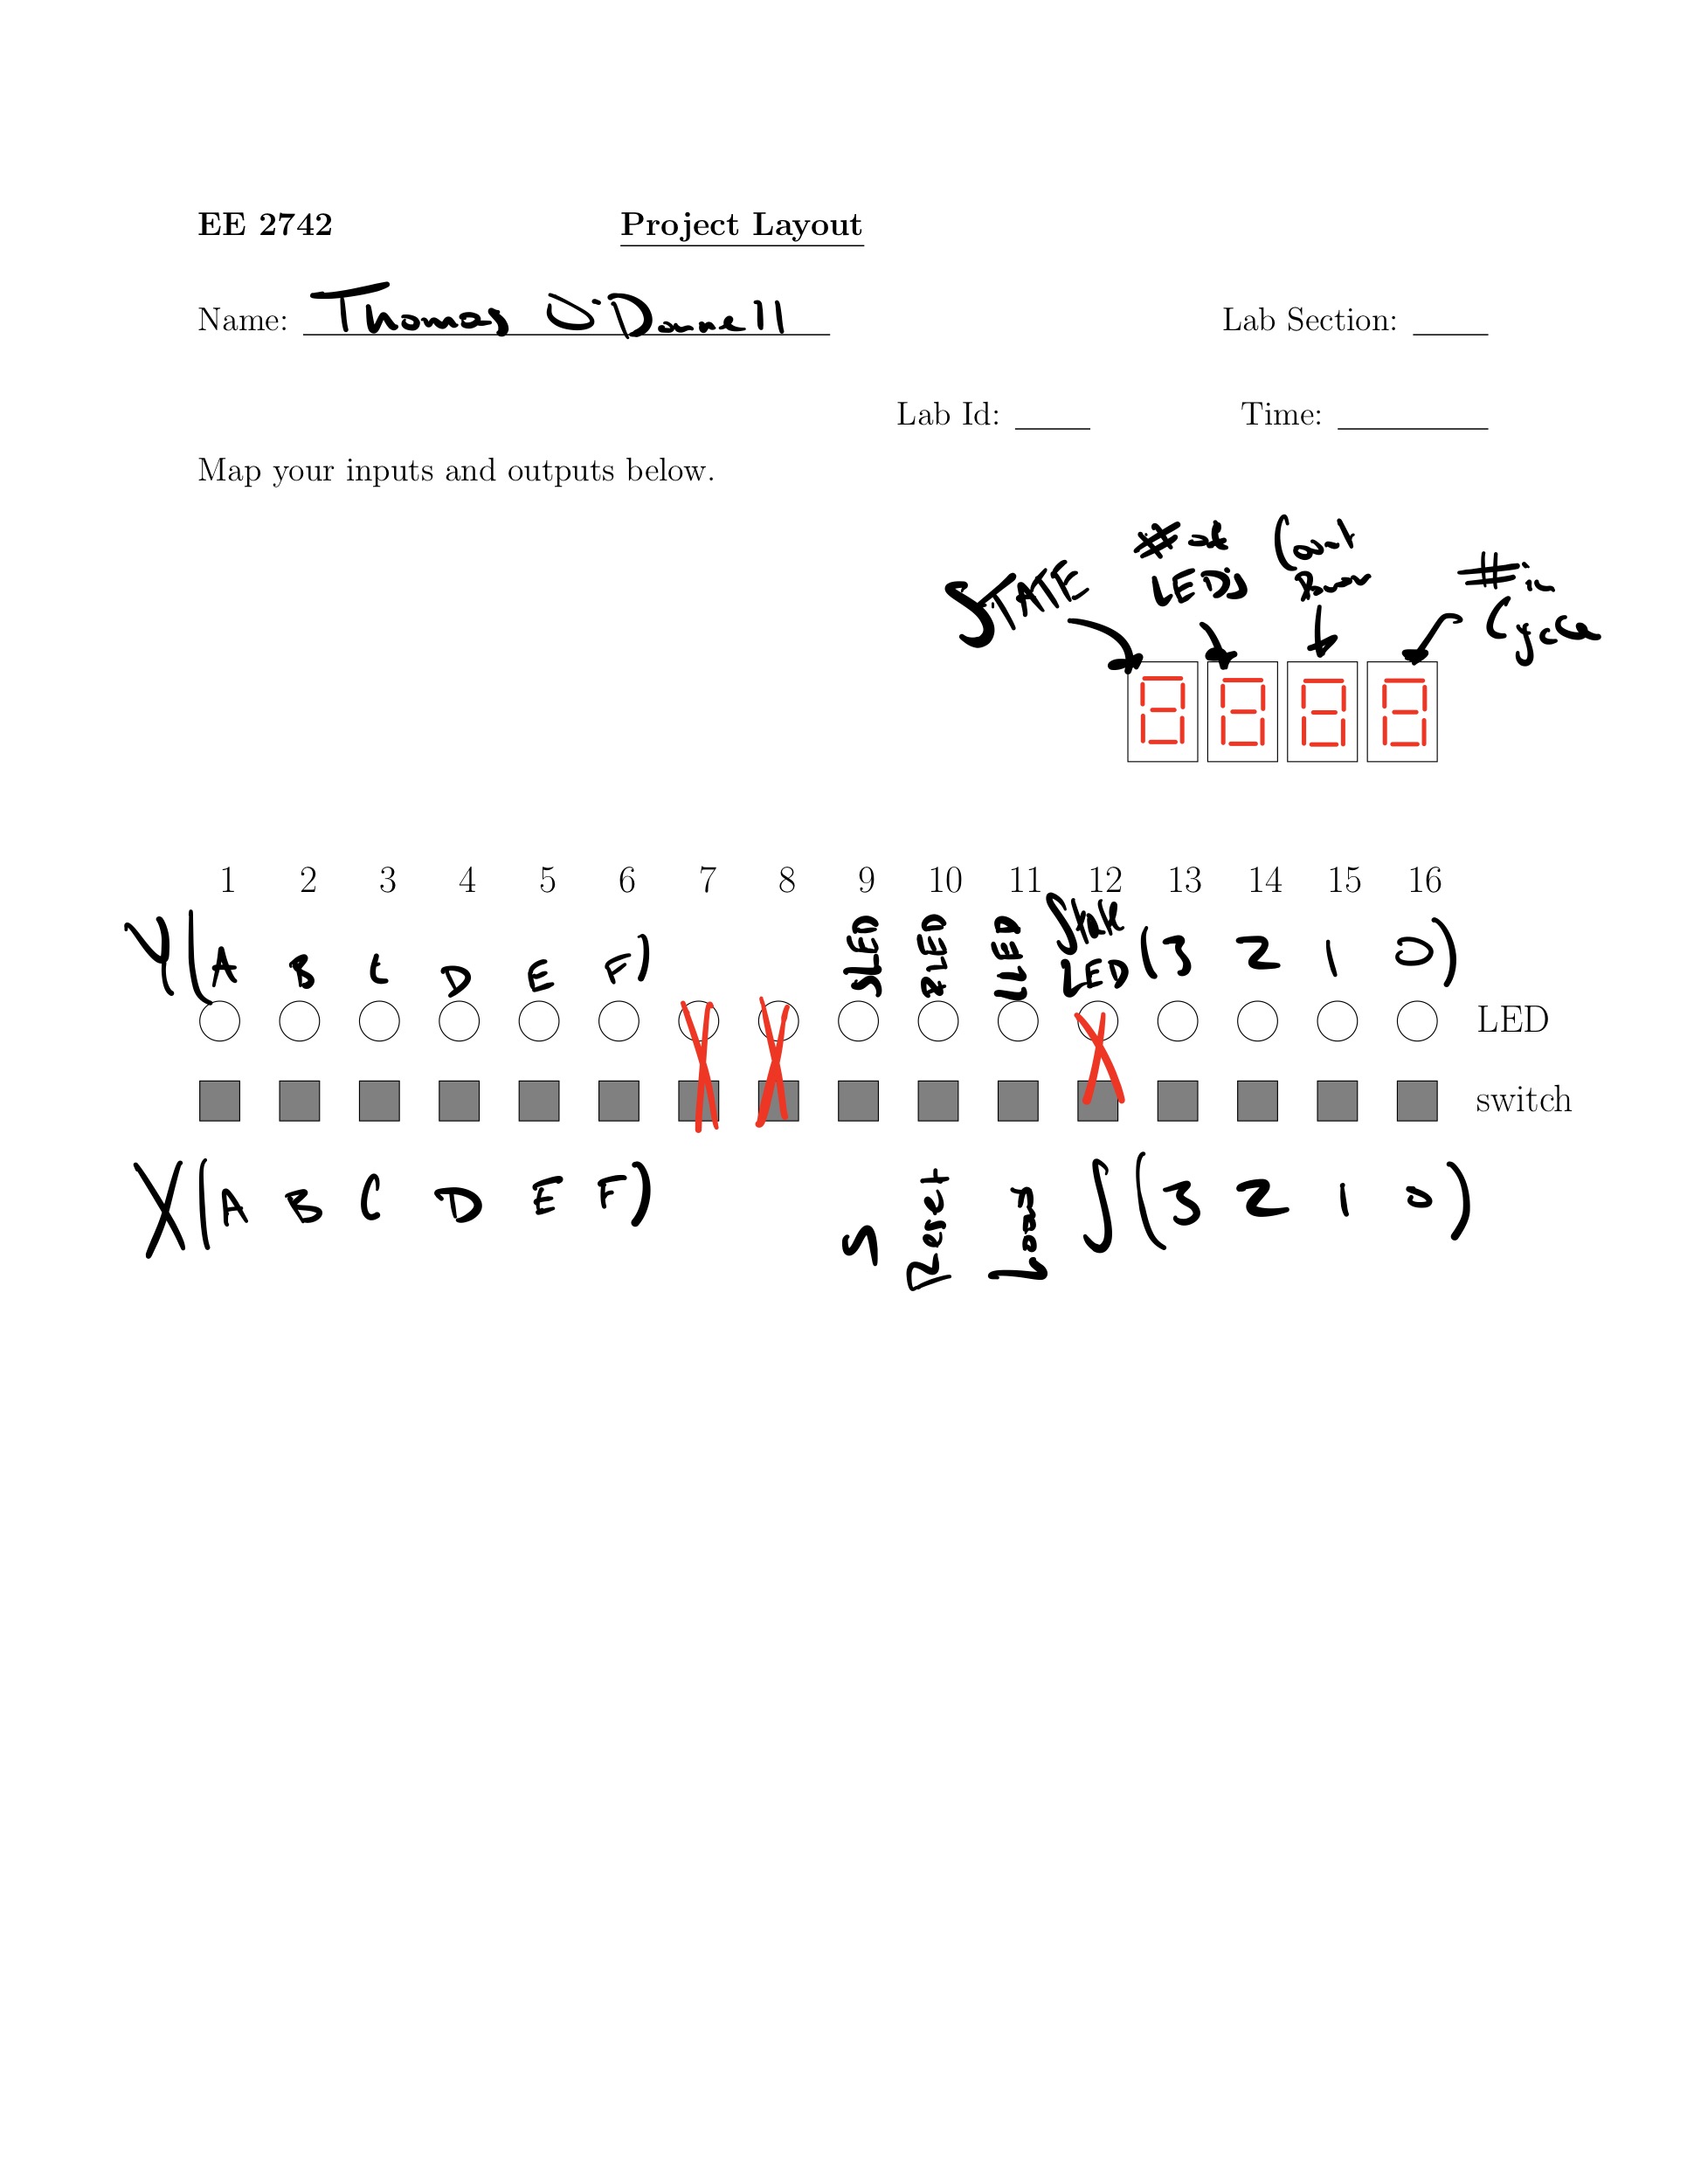 EE 2742 Project Layout
Name: Thomas O'Donnell Lab Section:
Lab Id: Time:
Map your inputs and outputs below.
STATE # of LEDs Count Down # in Cycle
8 8 8 8
1 2 3 4 5 6 7 8 9 10 11 12 13 14 15 16
Y(A B C D E F) SLED RLED LLED State LED (3 2 1 0)
LED
switch
X(A B C D E F) S Reset Load S(3 2 1 0)